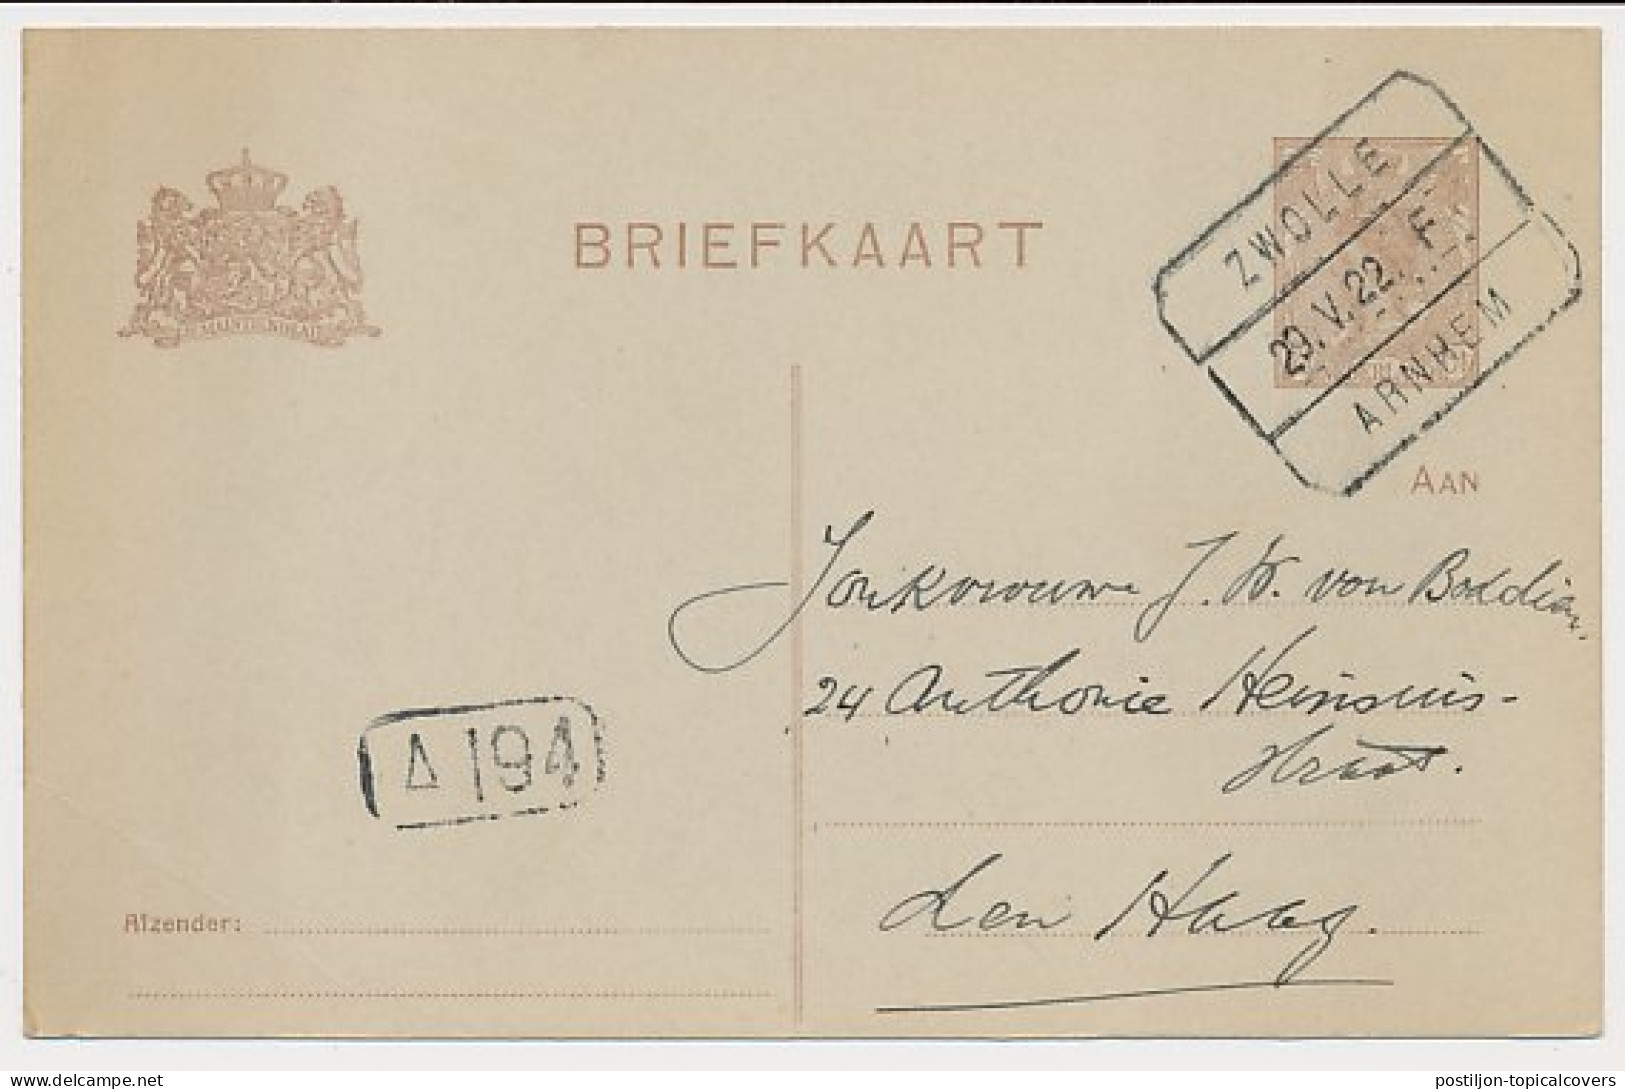 BRIEFKAART
ZWOLLE
29.V.22. F
ARNHEM
AAN
Jonkvrouwe J. W. von
24 Anthonie Heinsius-
straat.
Δ 194
Den Haag.
Afzender:
delcampe.net
postiljon-topicalcovers